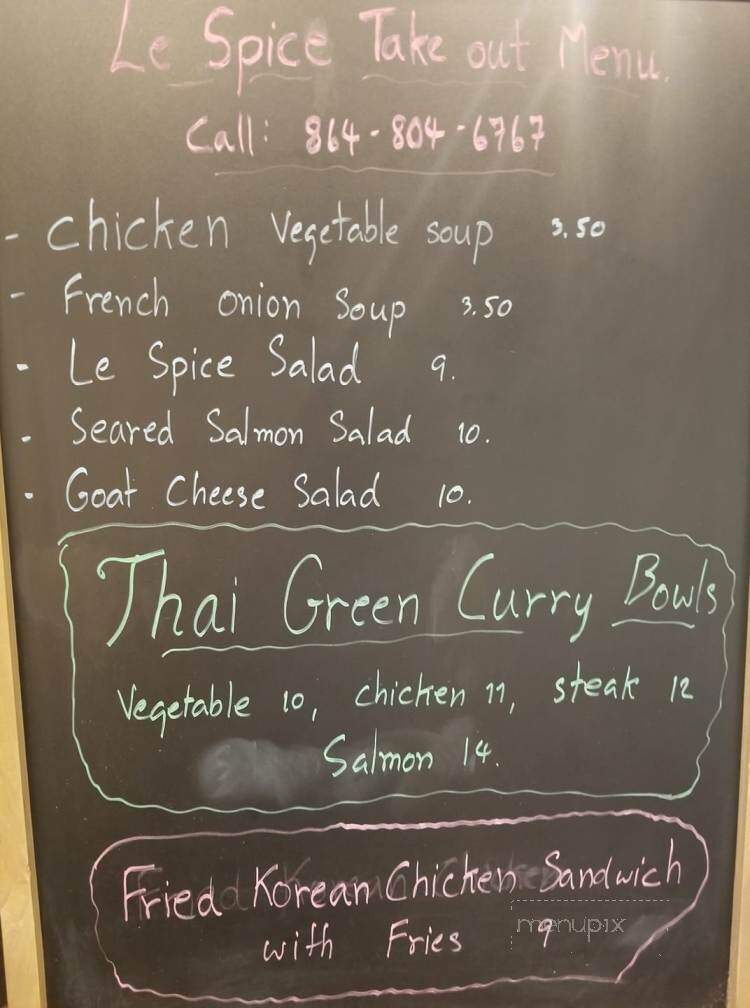 Le Spice Take out Menu.
Call: 864-804-6767
- Chicken Vegetable soup 3.50
- French onion Soup 3.50
- Le Spice Salad 9.
- Seared Salmon Salad 10.
- Goat Cheese Salad 10.
Thai Green Curry Bowls
Vegetable 10, chicken 11, steak 12
Salmon 14.
Fried Korean Chicken Sandwich
with Fries 9
menupix